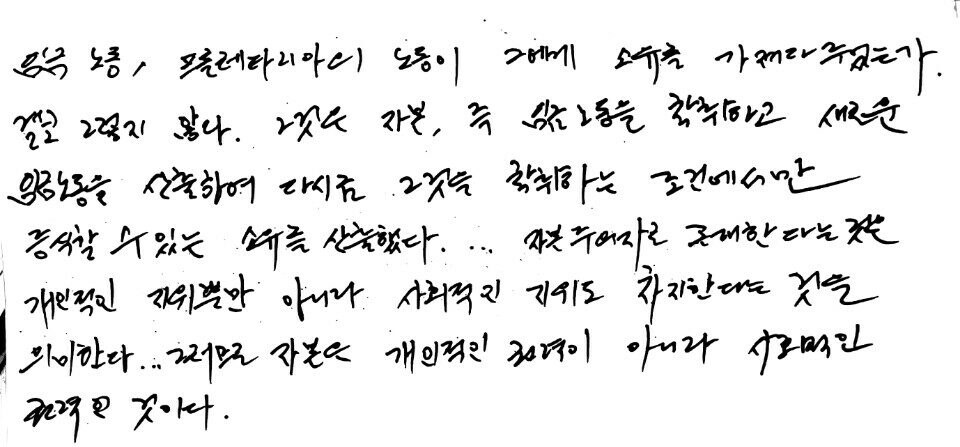 임금 노동, 프롤레타리아의 노동이 그에게 소유를 가져다 주었는가.
결코 그렇지 않다. 그것은 자본, 즉 임금노동을 착취하고 새로운
임금노동을 산출하여 다시금 그것을 착취하는 조건에서만
증식할 수 있는 소유를 산출했다. ... 자본주의자로 존재한다는 것은
개인적인 지위뿐만 아니라 사회적인 지위도 차지한다는 것을
의미한다... 그러므로 자본은 개인적인 권력이 아니라 사회적인
권력인 것이다.